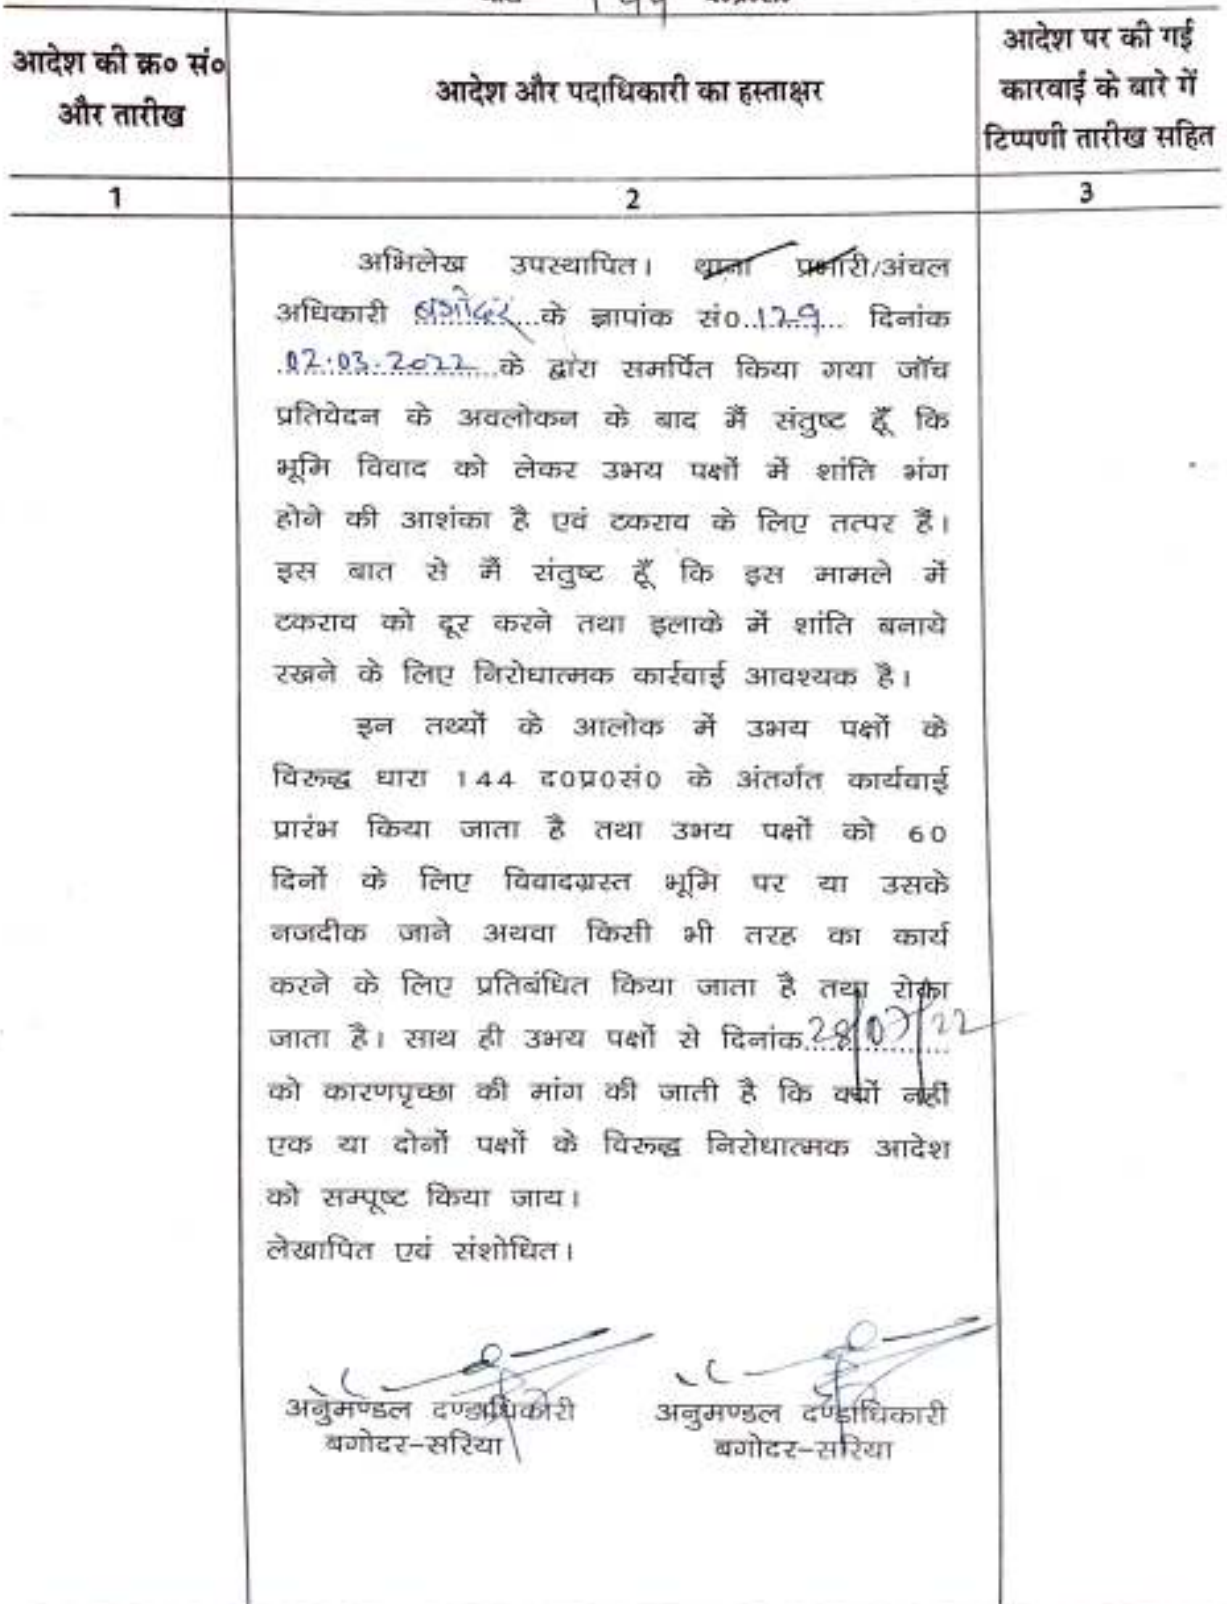 144
आदेश की क्र० सं० और तारीख
आदेश और पदाधिकारी का हस्ताक्षर
आदेश पर की गई कारवाई के बारे में टिप्पणी तारीख सहित
1 2 3
अभिलेख उपस्थापित। थाना प्रभारी/अंचल
अधिकारी बगोदर के ज्ञापांक सं0.129... दिनांक
02.03.2022 के द्वारा समर्पित किया गया जॉच
प्रतिवेदन के अवलोकन के बाद मैं संतुष्ट हूँ कि
भूमि विवाद को लेकर उभय पक्षों में शांति भंग
होने की आशंका है एवं टकराव के लिए तत्पर हैं।
इस बात से मैं संतुष्ट हूँ कि इस मामले में
टकराव को दूर करने तथा इलाके में शांति बनाये
रखने के लिए निरोधात्मक कार्रवाई आवश्यक है।
इन तथ्यों के आलोक में उभय पक्षों के
विरुद्ध धारा 144 द0प्र0सं0 के अंतर्गत कार्यवाई
प्रारंभ किया जाता है तथा उभय पक्षों को 60
दिनों के लिए विवादग्रस्त भूमि पर या उसके
नजदीक जाने अथवा किसी भी तरह का कार्य
करने के लिए प्रतिबंधित किया जाता है तथा रोका
जाता है। साथ ही उभय पक्षों से दिनांक 28/07/22
को कारणपृच्छा की मांग की जाती है कि क्यों नहीं
एक या दोनों पक्षों के विरुद्ध निरोधात्मक आदेश
को सम्पूष्ट किया जाय।
लेखापित एवं संशोधित।
अनुमण्डल दण्डाधिकारी अनुमण्डल दण्डाधिकारी
बगोदर-सरिया बगोदर-सरिया